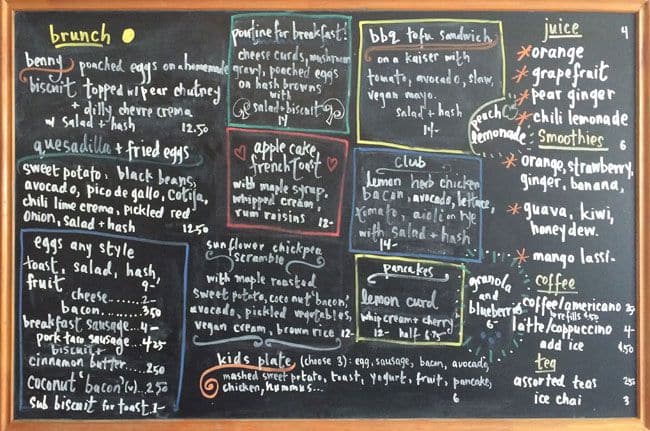 brunch
benny poached eggs on a homemade
biscuit topped w/ pear chutney
+ dilly chevre crema
w salad + hash 12.50
quesadilla + fried eggs
sweet potato, black beans,
avocado, pico de gallo, cotija,
chili lime crema, pickled red
onion, salad + hash 12.50
eggs any style
toast, salad, hash,
fruit 9-
cheese......2-
bacon......3.50
breakfast sausage...4-
pork taco sausage...4.25
biscuit +
cinnamon butter......2.50
coconut "bacon" (v)...2.50
sub biscuit for toast.1-
poutine for breakfast!
cheese curds, mushroom
gravy, poached eggs
on hash browns
with
salad + biscuit
14
apple cake
french toast
with maple syrup,
whipped cream,
rum raisins 12-
sunflower chickpea
scramble
with maple roasted
sweet potato, coconut bacon,
avocado, pickled vegetables,
vegan cream, brown rice 12-
kids plate (choose 3): egg, sausage, bacon, avocado,
mashed sweet potato, toast, yogurt, fruit, pancake,
chicken, hummus...
6
bbq tofu sandwich
on a kaiser with
tomato, avocado, slaw,
vegan mayo.
salad + hash
14-
club
lemon herb chicken
bacon, avocado, lettuce,
tomato, aioli on rye
with salad + hash
14-
pancakes
lemon curd
whip cream + cherry
12- half 6.75
peach
lemonade
granola
and
blueberries
6-
juice 4
orange
grapefruit
pear ginger
chili lemonade
Smoothies 6
orange, strawberry,
ginger, banana,
guava, kiwi,
honeydew.
mango lassi-
coffee
coffee/americano 2.5
refills + .50
latte/cappuccino 4-
add ice 1.50
tea
assorted teas 2.50
ice chai 3